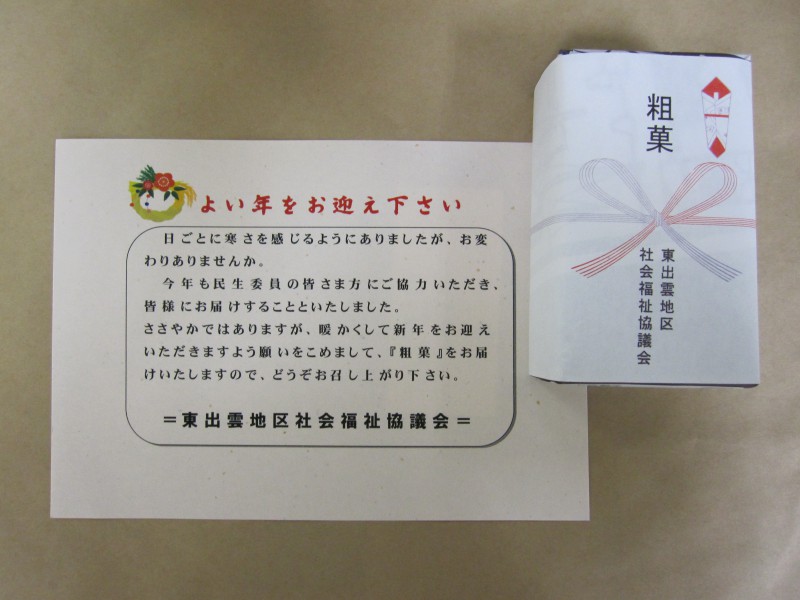 よい年をお迎え下さい
日ごとに寒さを感じるようにありましたが、お変
わりありませんか。
今年も民生委員の皆さま方にご協力いただき、
皆様にお届けすることといたしました。
ささやかではありますが、暖かくして新年をお迎え
いただきますよう願いをこめまして、『粗菓』をお届
けいたしますので、どうぞお召し上がり下さい。
＝東出雲地区社会福祉協議会＝
粗菓
東出雲地区
社会福祉協議会